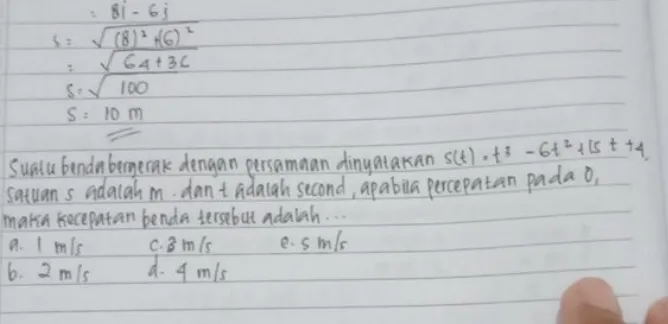 : 8i - 6j
s = √(8)² + (6)²
= √64 + 36
s = √100
s = 10 m
Suatu benda bergerak dengan persamaan dinyatakan s(t) = t³ - 6t² + 15t + 4.
satuan s adalah m. dan t adalah second, apabila percepatan pada 0,
maka kecepatan benda tersebut adalah...
a. 1 m/s c. 3 m/s e. 5 m/s
b. 2 m/s d. 4 m/s